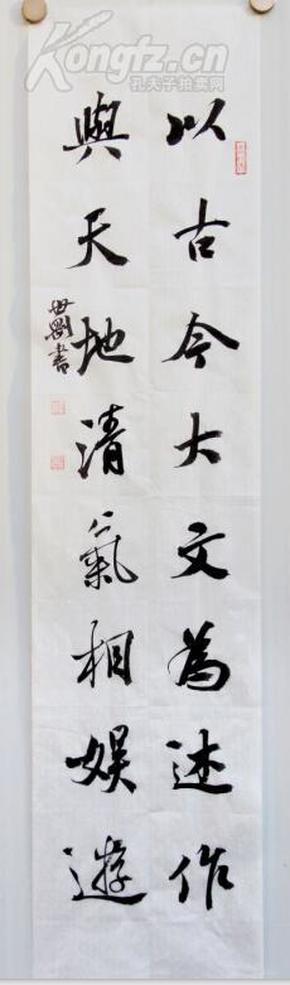 以古今大文為述作
與天地清氣相娛遊
世剛書
Kongfz.cn
孔夫子拍卖网